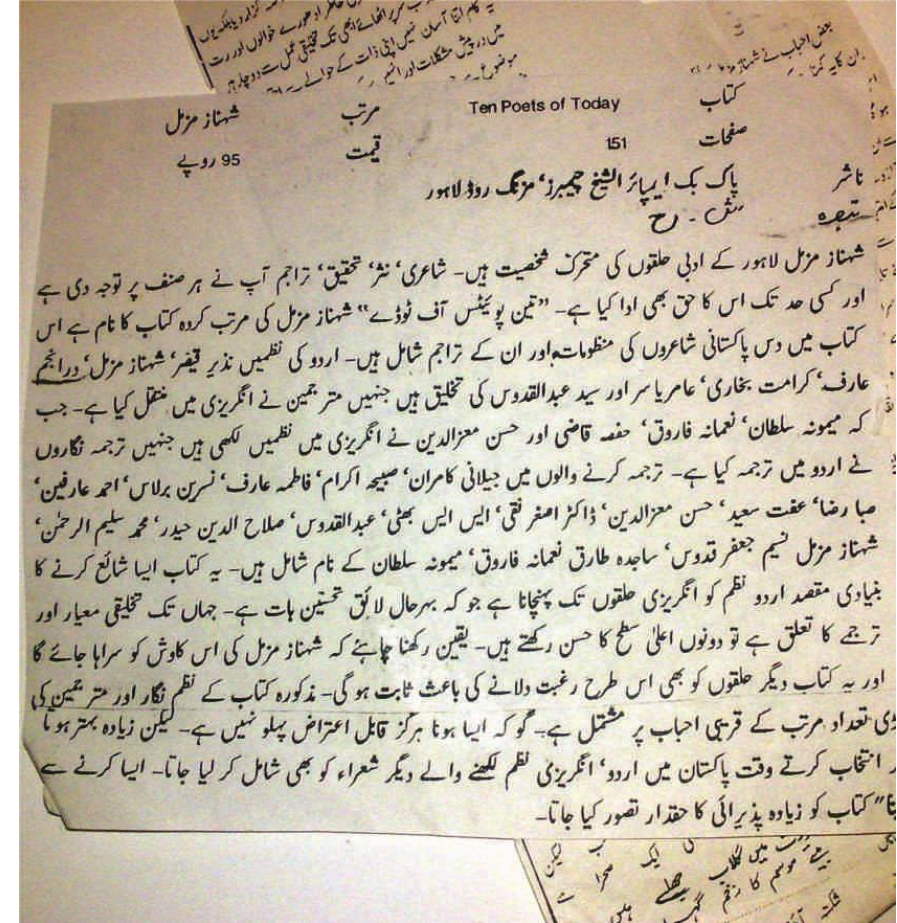 بعض احباب نے شہناز
کتاب Ten Poets of Today مرتب شہناز مزمل
صفحات 151 قیمت 95 روپے
ناشر پاک بک ایمپائر الشیخ چیمبرز، مزنگ روڈ لاہور
تبصرہ ش ۔ رح
شہناز مزمل لاہور کے ادبی حلقوں کی متحرک شخصیت ہیں۔ شاعری، نثر، تحقیق، تراجم آپ نے ہر صنف پر توجہ دی ہے
اور کسی حد تک اس کا حق بھی ادا کیا ہے۔ "تین پوئیٹس آف ٹوڈے" شہناز مزمل کی مرتب کردہ کتاب کا نام ہے اس
کتاب میں دس پاکستانی شاعروں کی منظومات اور ان کے تراجم شامل ہیں۔ اردو کی نظمیں نذیر قیصر، شہناز مزمل، درانجم
عارف، کرامت بخاری، عامر یاسر اور سید عبدالقدوس کی تخلیق ہیں جنہیں مترجمین نے انگریزی میں منتقل کیا ہے۔ جب
کہ میمونہ سلطان، نعمانہ فاروق، حفصہ قاضی اور حسن معزالدین نے انگریزی میں نظمیں لکھی ہیں جنہیں ترجمہ نگاروں
نے اردو میں ترجمہ کیا ہے۔ ترجمہ کرنے والوں میں جیلانی کامران، صبیحہ اکرام، فاطمہ عارف، نسرین برلاس، احمد عارفین،
صبا رضا، عفت سعید، حسن معزالدین، ڈاکٹر اصغر نقی، ایس ایس بھٹی، عبدالقدوس، صلاح الدین حیدر، محمد سلیم الرحمٰن،
شہناز مزمل نسیم جعفر قدوس، ساجدہ طارق نعمانہ فاروق، میمونہ سلطان کے نام شامل ہیں۔ یہ کتاب ایسا شائع کرنے کا
بنیادی مقصد اردو نظم کو انگریزی حلقوں تک پہنچانا ہے جو کہ بہرحال لائق تحسین بات ہے۔ جہاں تک تخلیقی معیار اور
ترجمے کا تعلق ہے تو دونوں اعلیٰ سطح کا حسن رکھتے ہیں۔ یقین رکھنا چاہئے کہ شہناز مزمل کی اس کاوش کو سراہا جائے گا
اور یہ کتاب دیگر حلقوں کو بھی اس طرح رغبت دلانے کی باعث ثابت ہوگی۔ مذکورہ کتاب کے نظم نگار اور مترجمین کی
تعداد مرتب کے قریبی احباب پر مشتمل ہے۔ گو کہ ایسا ہونا ہرگز قابل اعتراض پہلو نہیں ہے۔ لیکن زیادہ بہتر ہوتا
انتخاب کرتے وقت پاکستان میں اردو، انگریزی نظم لکھنے والے دیگر شعراء کو بھی شامل کر لیا جاتا۔ ایسا کرنے سے
کتاب کو زیادہ پذیرائی کا حقدار تصور کیا جاتا۔